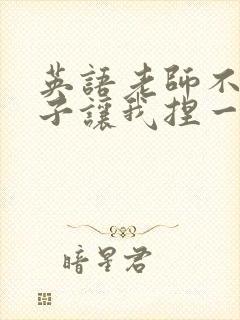 英語老師不
子讓我捏一
暗星君